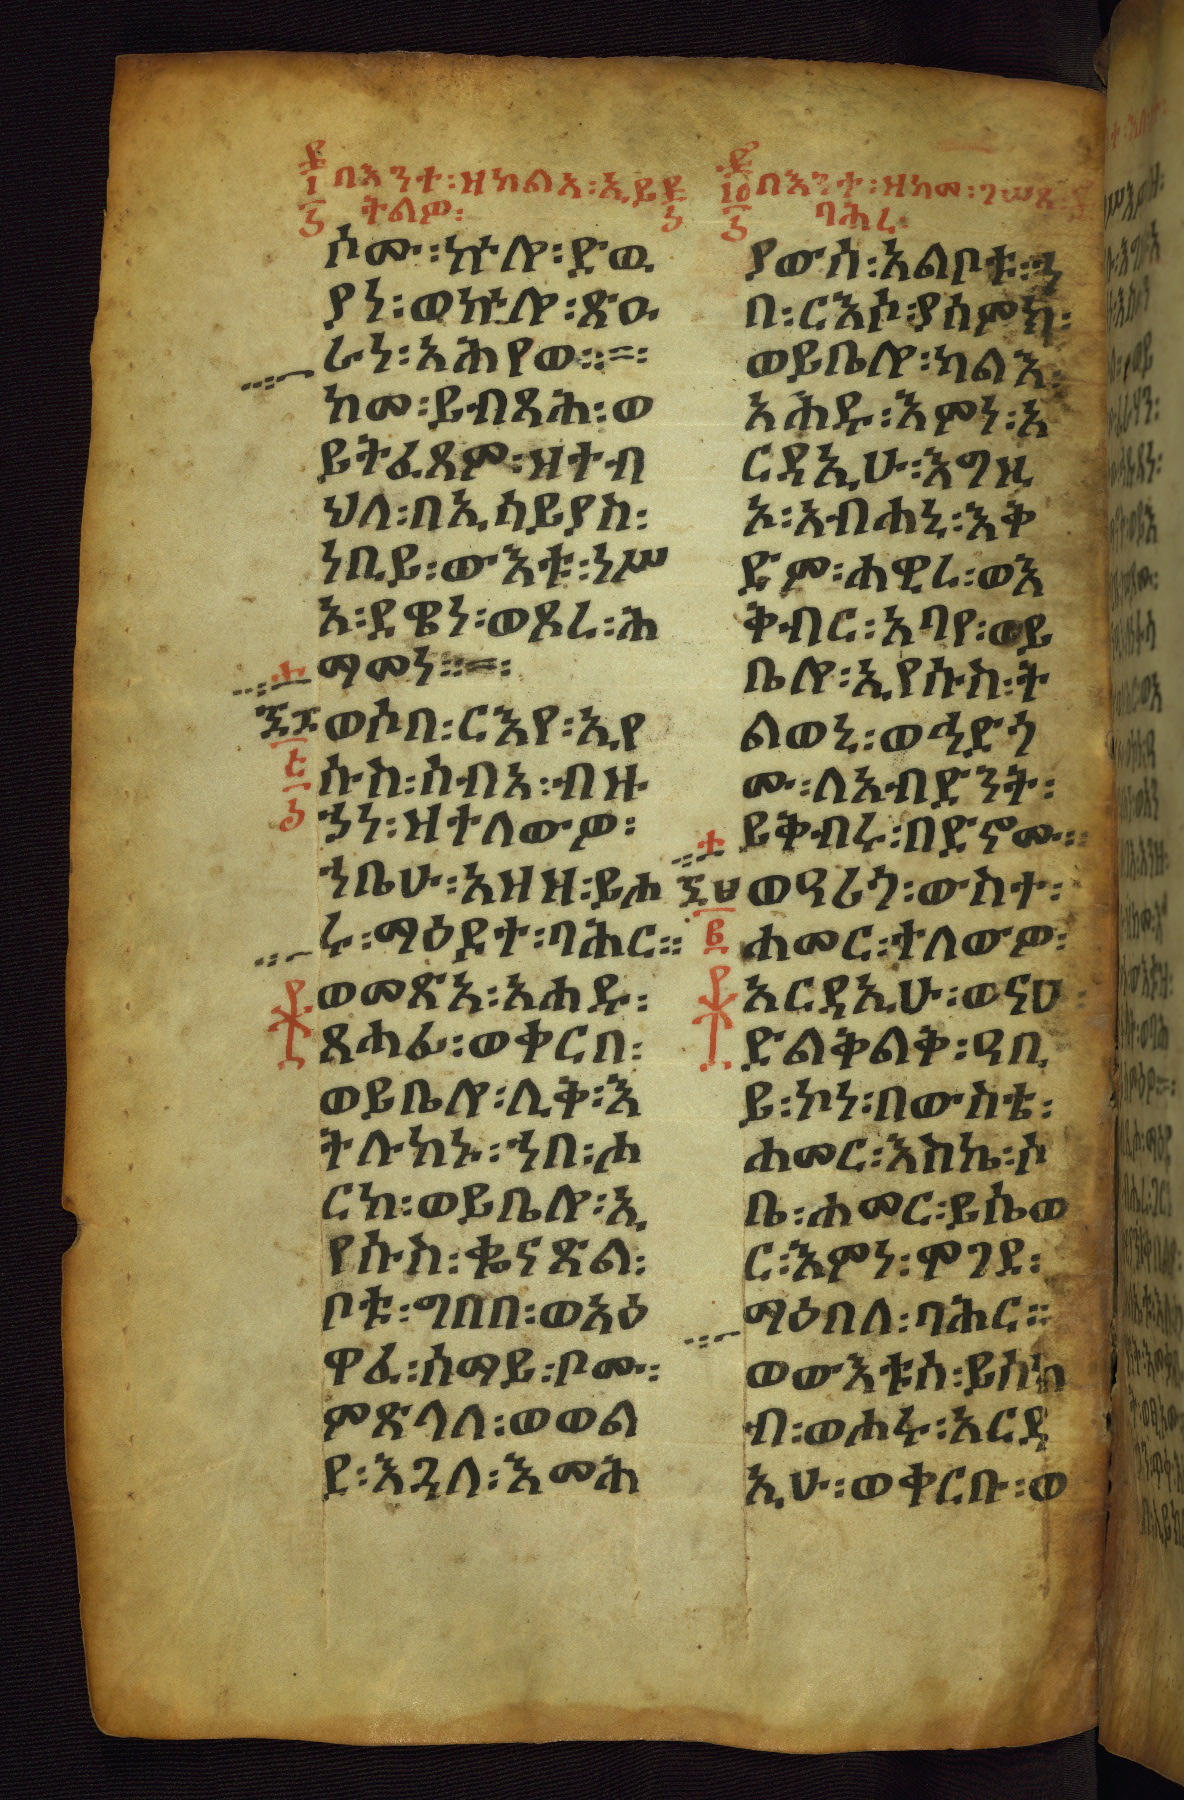 በእንተ፡ዘከልአ፡ኢይ
ትልዎ፡
ሶሙ፡ኵሎ፡ድዉ
ያነ፡ወኵሎ፡ጽዑ
ራነ፡አሕየወ።=፡
ከመ፡ይብጻሕ፡ወ
ይትፈጸም፡ዝተብ
ህለ፡በኢሳይያስ፡
ነቢይ፡ውእቱ፡ነሥ
አ፡ደዌነ፡ወጾረ፡ሕ
ማመነ።=፡
ወሶበ፡ርእየ፡ኢየ
ሱስ፡ሰብአ፡ብዙ
ኃነ፡ዝተለውዎ፡
ኀቤሁ፡አዘዘ፡ይሐ
ሩ፡ማዕደተ፡ባሕር።
ወመጽአ፡አሐዱ፡
ጸሐፊ፡ወቀርበ፡
ወይቤሎ፡ሊቅ፡እ
ትሉከኑ፡ኀበ፡ሐ
ርከ፡ወይቤሎ፡ኢ
የሱስ፡ቈናጽል፡
ቦቱ፡ግበበ፡ወአዕ
ዋፈ፡ሰማይ፡ቦሙ፡
ምጽላለ፡ወወል
ደ፡እጓለ፡እመሕ
በእንተ፡ዘከመ፡ገሠጸ፡
ባሕረ፡
ያውስ፡አልቦቱ፡ኀ
በ፡ርእሶ፡ያሰምክ፡
ወይቤሎ፡ካልእ፡
አሕዱ፡እምነ፡አ
ርዳኢሁ፡እግዚ
ኦ፡አብሐኒ፡እቅ
ድም፡ሐዊረ፡ወእ
ቅብር፡አባየ፡ወይ
ቤሎ፡ኢየሱስ፡ት
ልወኒ፡ወኂድጎ
ሙ፡ለአብድንት፡
ይቅብሩ፡በድኖሙ።
ወዓሪጎ፡ውስተ፡
ሐመር፡ተለውዎ፡
አርዳኢሁ፡ወናሁ፡
ድልቅልቅ፡ዓቢ
ይ፡ኮነ፡በውስቴ፡
ሐመር፡እስከ፡ሶ
ቤ፡ሐመር፡ይሴወ
ር፡እምነ፡ሞገደ፡
ማዕበለ፡ባሕር።
ወውእቱሰ፡ይሰክ
ብ፡ወሐሩ፡አርዳ
ኢሁ፡ወቀርቡ፡ወ